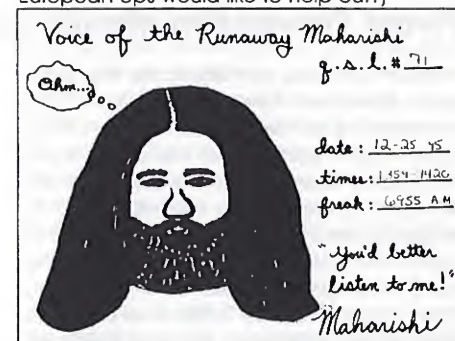 Voice of the Runaway Maharishi
q.s.l. # 71
Ohm...
date: 12-25
times:
freak: 6955 AM
"You'd better
listen to me!"
Maharishi